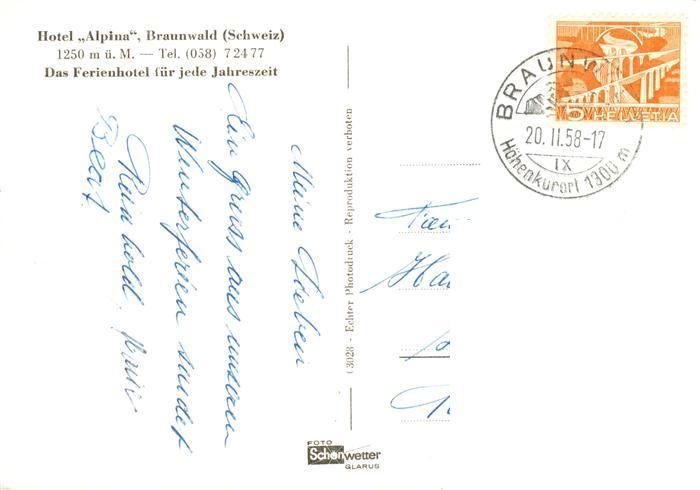 Hotel „Alpina“, Braunwald (Schweiz)
1250 m ü. M. — Tel. (058) 7 24 77
Das Ferienhotel für jede Jahreszeit
Meine Lieben
Ein Gruss aus unseren
Winterferien sendet
Rainhold
Beat
(3028 - Echter Photodruck - Reproduktion verboten
Ha
FOTO
Schönwetter
GLARUS
5 HELVETIA
BRAUNW
20. II. 58-17
IX
Höhenkurort 1300 m